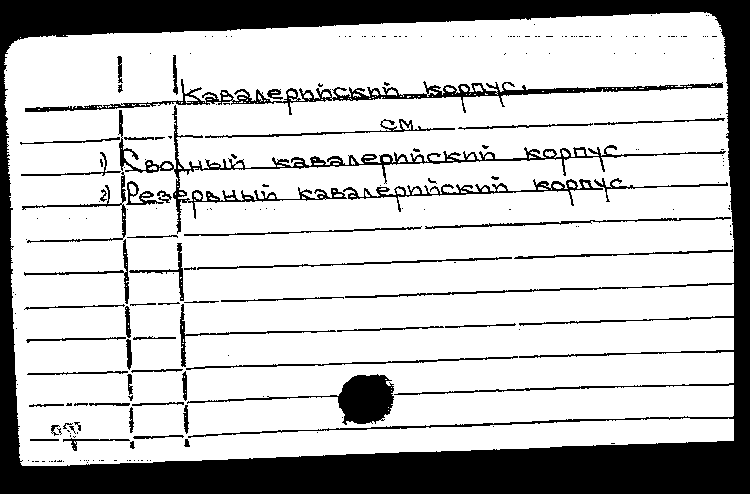 Кавалерийский корпус.
см.
1) Сводный кавалерийский корпус
2) Резервный кавалерийский корпус.